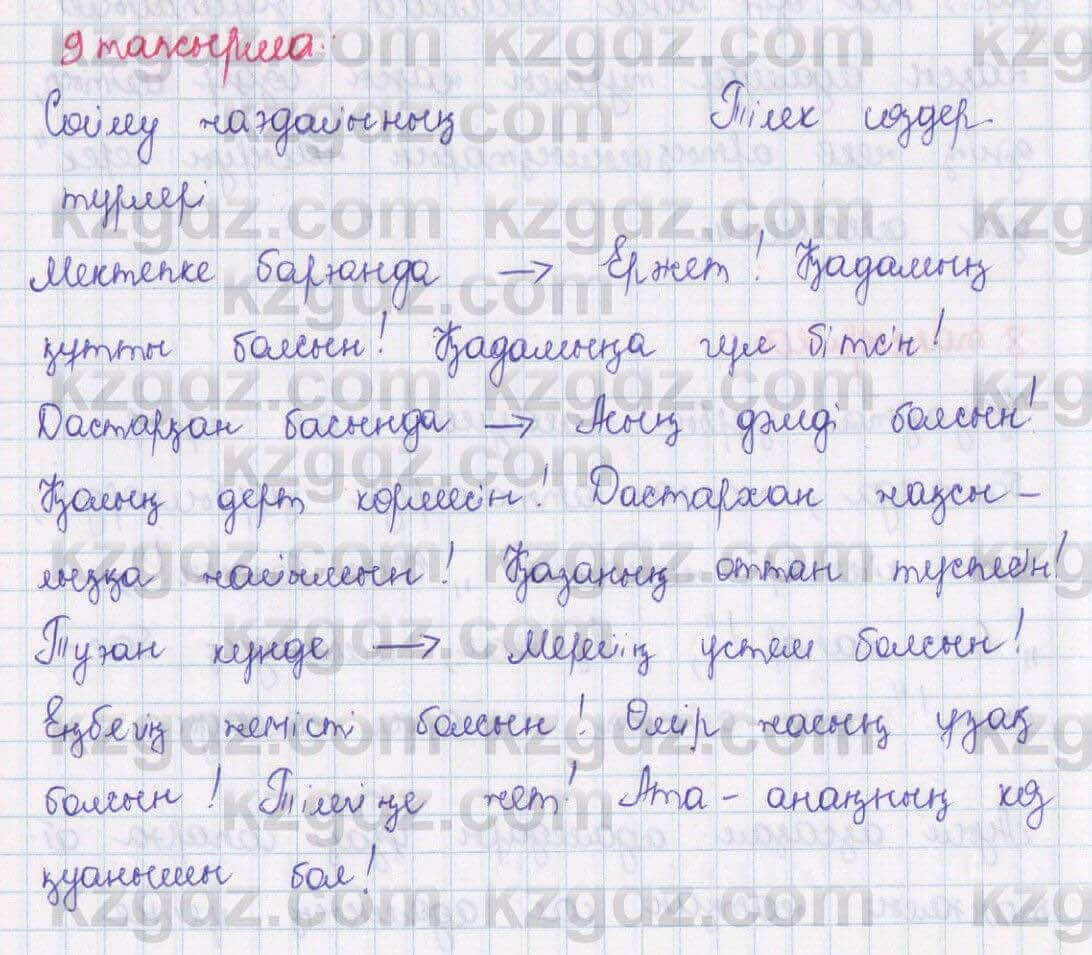 9 тапсырма:
Сөйлеу жағдайының Тілек сөздер
түрлері
Мектепке барғанда → Ержет! Қадамың
құтты болсын! Қадамыңа гүл бітсін!
Дастарқан басында → Асың дәмді болсын!
Қолың дерт көрмесін! Дастархан жақсы-
лыққа жайылсын! Қазаның оттан түспесін!
Туған күнде → Мерейің үстем болсын!
Еңбегің жемісті болсын! Өмір жасың ұзақ
болсын! Тілегіңе жет! Ата-анаңның көз
қуанышы бол!
kzgdz.com